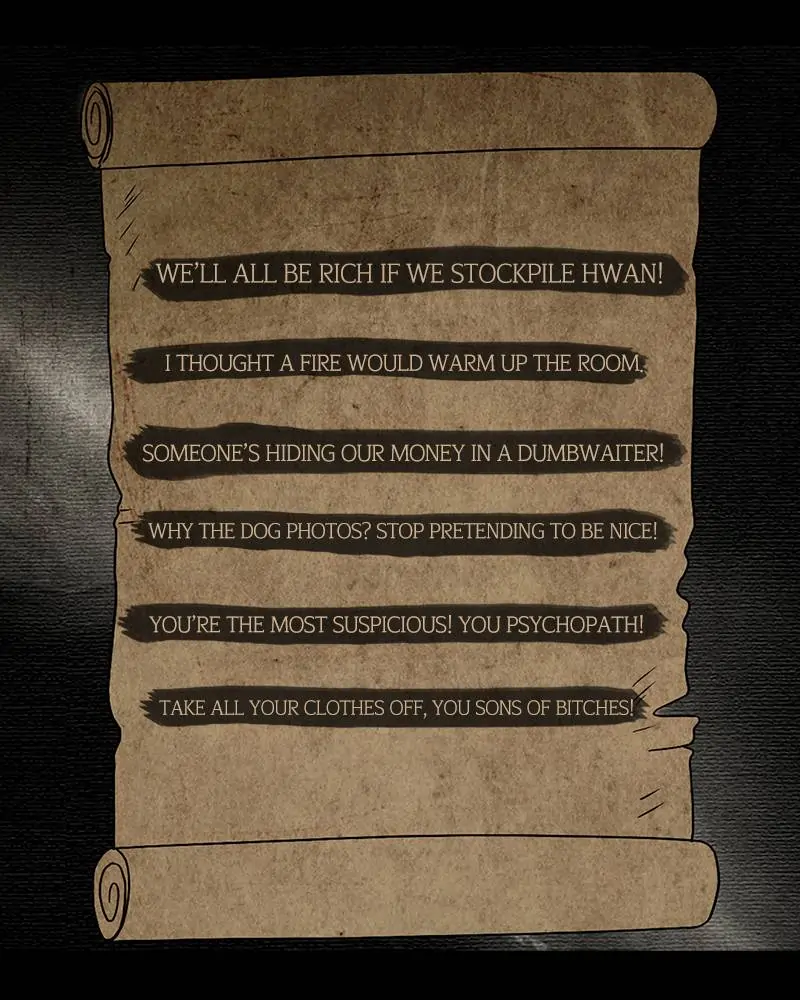 WE'LL ALL BE RICH IF WE STOCKPILE HWAN!
I THOUGHT A FIRE WOULD WARM UP THE ROOM.
SOMEONE'S HIDING OUR MONEY IN A DUMBWAITER!
WHY THE DOG PHOTOS? STOP PRETENDING TO BE NICE!
YOU'RE THE MOST SUSPICIOUS! YOU PSYCHOPATH!
TAKE ALL YOUR CLOTHES OFF, YOU SONS OF BITCHES!